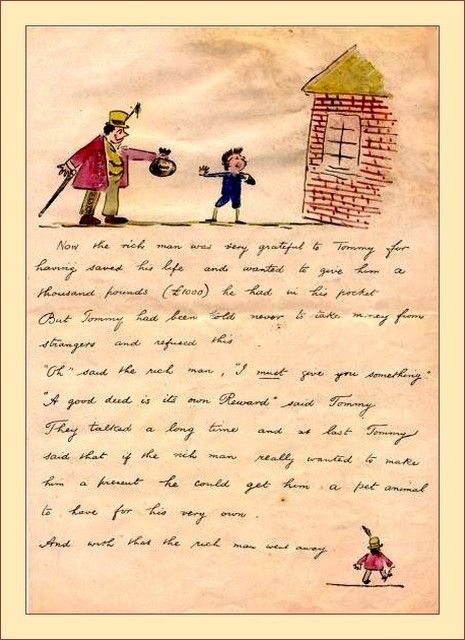 Now the rich man was very grateful to Tommy for
having saved his life and wanted to give him a
thousand pounds (£1000) he had in his pocket
But Tommy had been told never to take money from
strangers and refused this
"Oh" said the rich man, "I must give you something"
"A good deed is its own Reward" said Tommy
They talked a long time and at last Tommy
said that if the rich man really wanted to make
him a present he could get him a pet animal
to have for his very own.
And with that the rich man went away